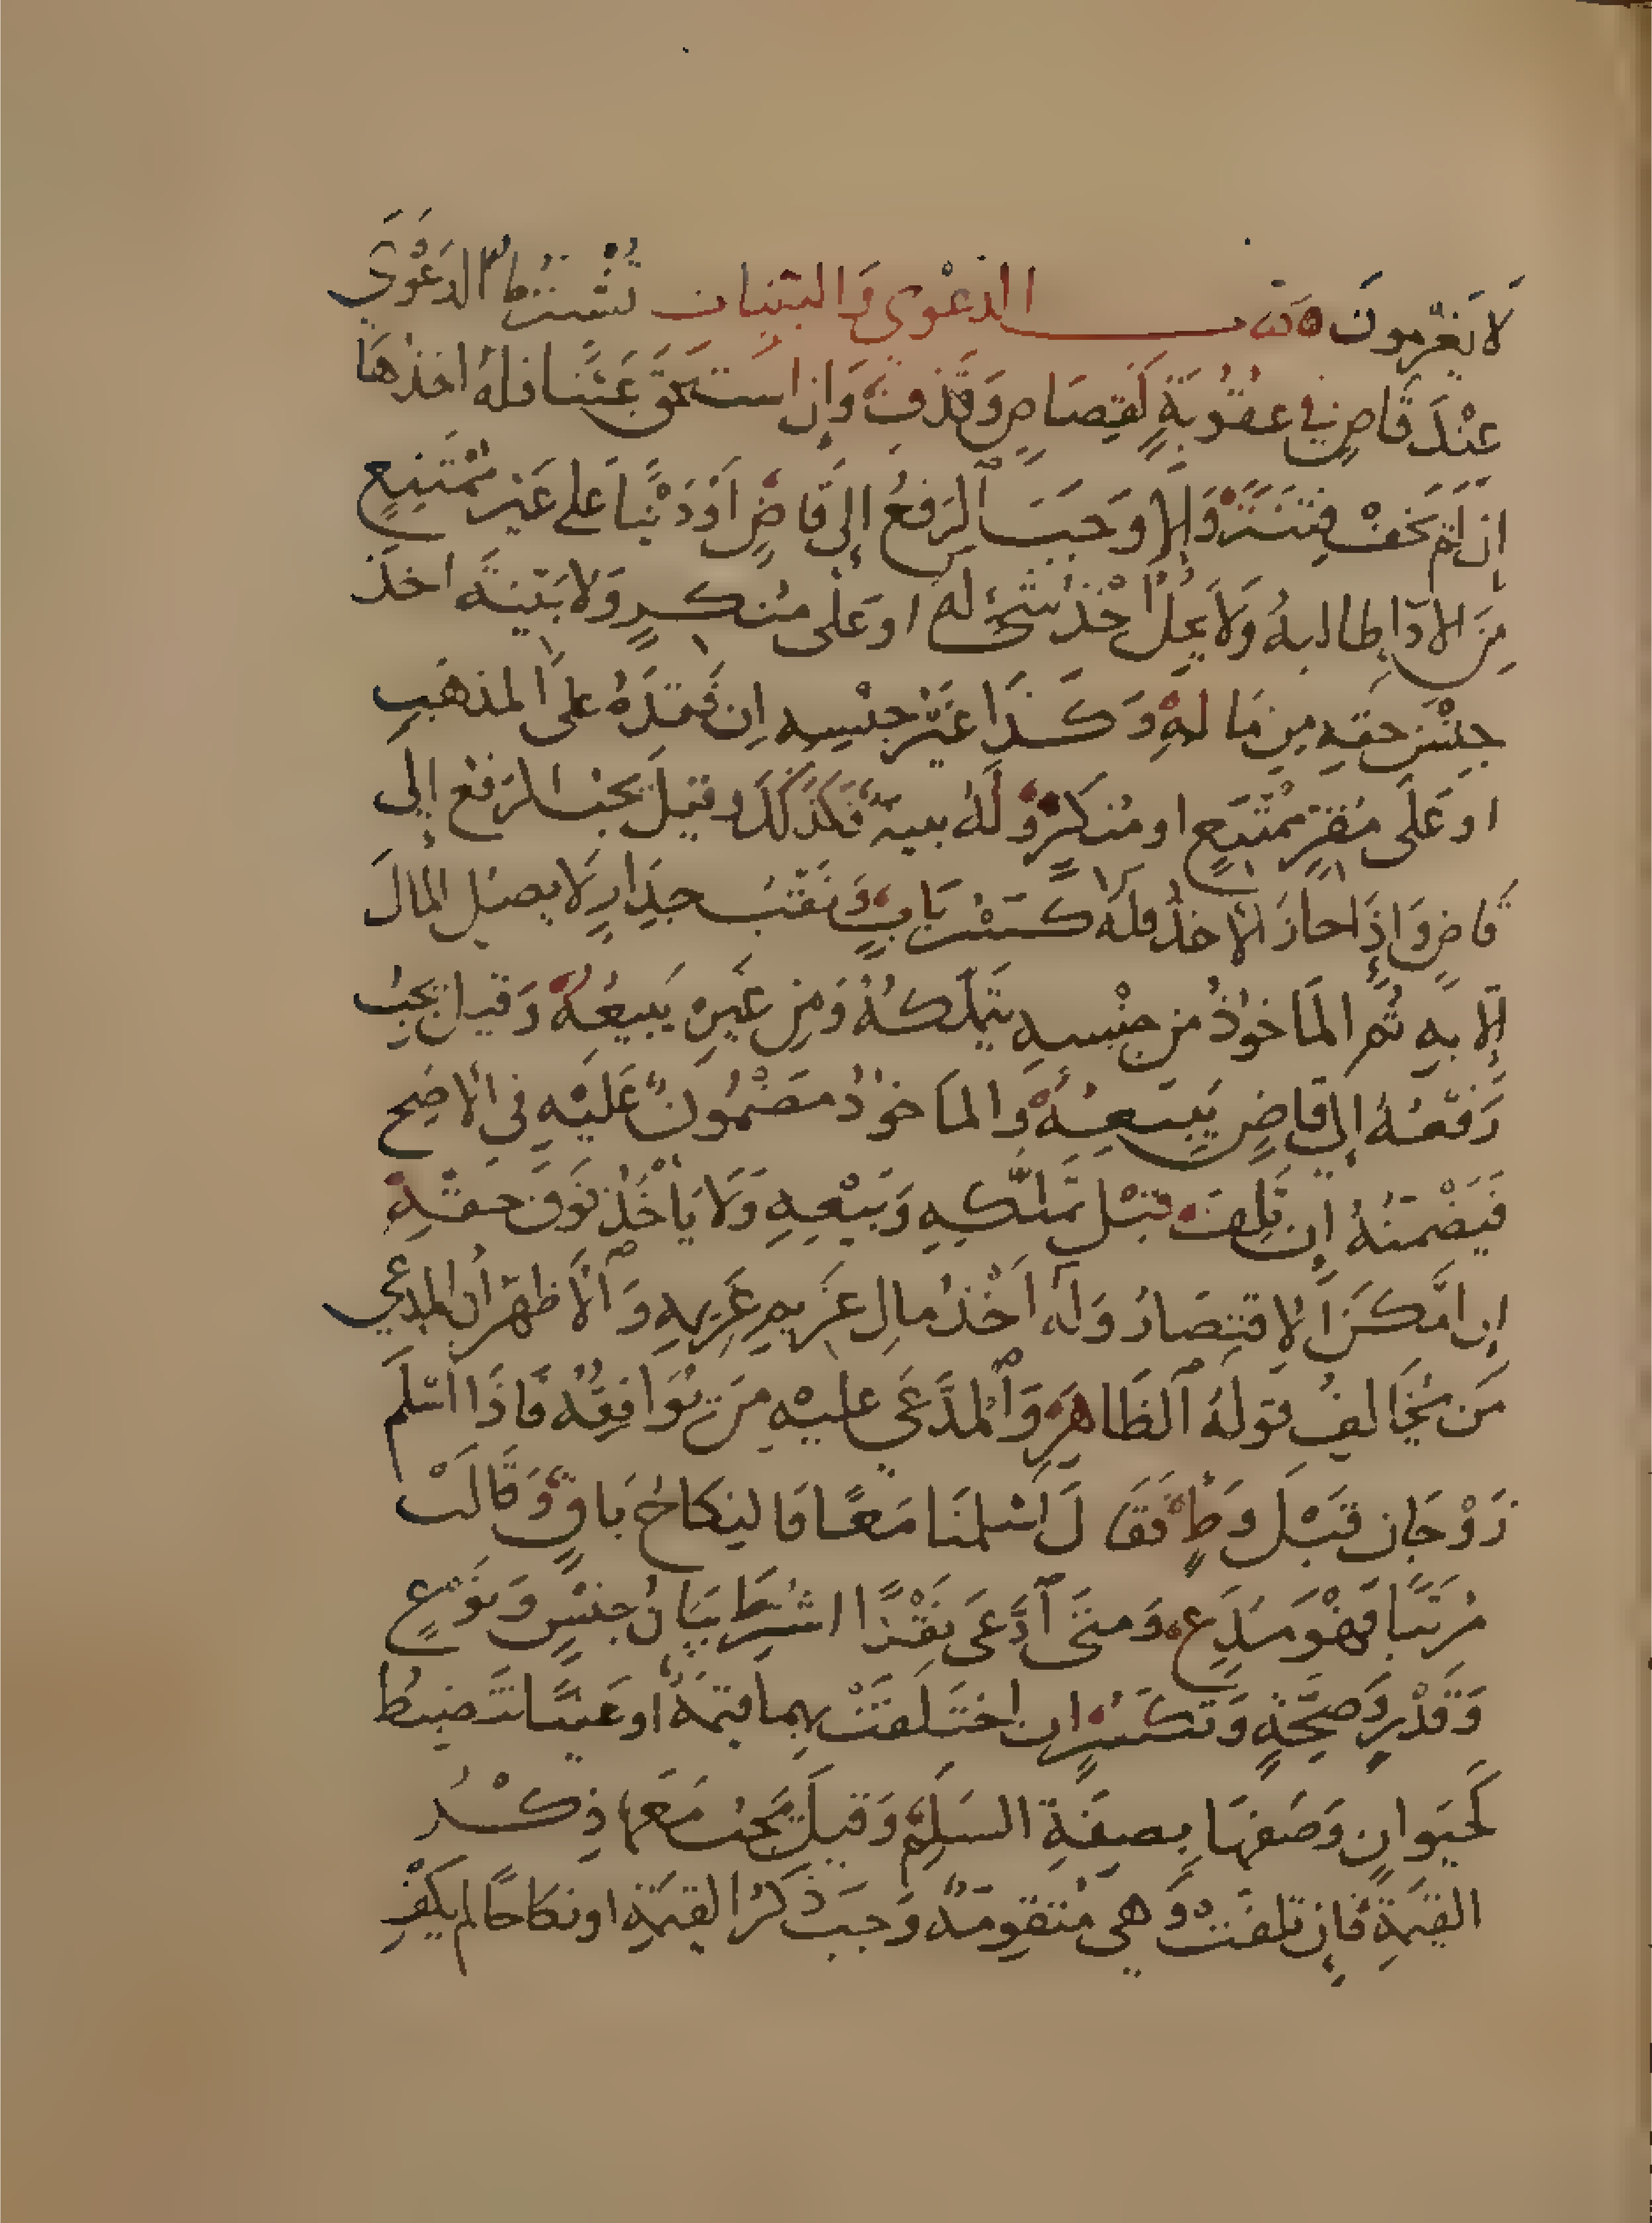 لَا يَغْرَمُونَ ه كتاب الدعْوى وَالبيّنات تُشْتَرَطُ الدَعْوَى
عِنْدَ قَاضٍ فِي عقُوُبَةٍ كَقِصَاصٍ وَقَذفٍ وَإِن اسْتَحَقَّ عَيْنًا فلهُ اخذُهَا
ان لَمْ يَخَفْ فِتْنَةً وَإِلا وَجَبَ الرَفعُ إِلى قَاضٍ اَوْ دَيْنًا على غَيْرِ مُمْتَنِعٍ
مِنَ الادَآ طالبهُ وَلَا يحِلُّ أَخْذُ شَئٍ لهُ او عَلى مُنكِرٍ وَلا بَيّنةَ أخذَ
جِنْسَ حقهِ مِن مَالهِ وَكَذا غَيْرَ جِنْسِهِ اِن فَقَدَهُ عَلى المذهَبِ
او عَلَى مُقِرٍّ مُمْتَنِعٍ او مُنكِرٍ وَلَهُ بينةٌ فَكَذَلكَ وقيلَ يَجبُ الرَفعُ إِلى
قَاضٍ وَاِذَا جازَ الأخذُ فلَهُ كَسْرُ بَابٍ وَنَقْبُ جِدَارٍ لَا يصلُ المالَ
إِلّا بهِ ثُم المَأخوُذُ من جنْسهِ يَتَملّكهُ وَمِن غَيرِهِ يَبيعُهُ وَقيل يجبُ
رَفعُهُ إِلى قاضٍ يَبيعُهُ وَالمَأخوذُ مَضمُونٌ عَليْهِ فِي الأصَحِ
فَيَضْمَنُهُ إِن تَلِفَ قبْلَ تملّكهِ وَبَيْعِهِ وَلَا يَأخُذُ فَوقَ حَقّهِ
إِن امْكَنَ الِاقتِصَارُ وَلَهُ أَخْذُ مالِ غَرِيمِ غَرِيمِهِ وَالْأَظهَرُ أن المدعِي
مَن يُخَالفُ قولهُ الظَاهِرَ وَالْمدَّعَى عليْهِ مَن يُوَافِقُهُ فَاذَا اسْلَم
زَوْجَان قَبْلَ وَطْءٍ فَقَالَ اَسْلمنَا مَعًا فَالنِكَاحُ بَاقٍ وَقَالَتْ
مُرَتّبًا فَهْوَ مُدَّعٍ وَمتَى ٱدَّعَى نَقْدًا اشترِطَ بَيَانُ جِنسٍ وَنَوْعٍ
وَقَدْرٍ وَصِحَّةٍ وَتكَسُّرٍ اِن اختَلَفَتْ بهِمَا قيمَةٌ او عَيْنًا تَنضبطُ
كَحَيَوانٍ وَصَفهَا بِصفَةِ السَلَمِ وَقيلَ يَجبُ مَعَهَا ذِكْرُ
القيمَةِ فَإِن تلفَتْ وَهي مُتقَوِمَةٌ وَجبَ ذكرُ القيمَةِ او نكَاحًا لم يَكفِ